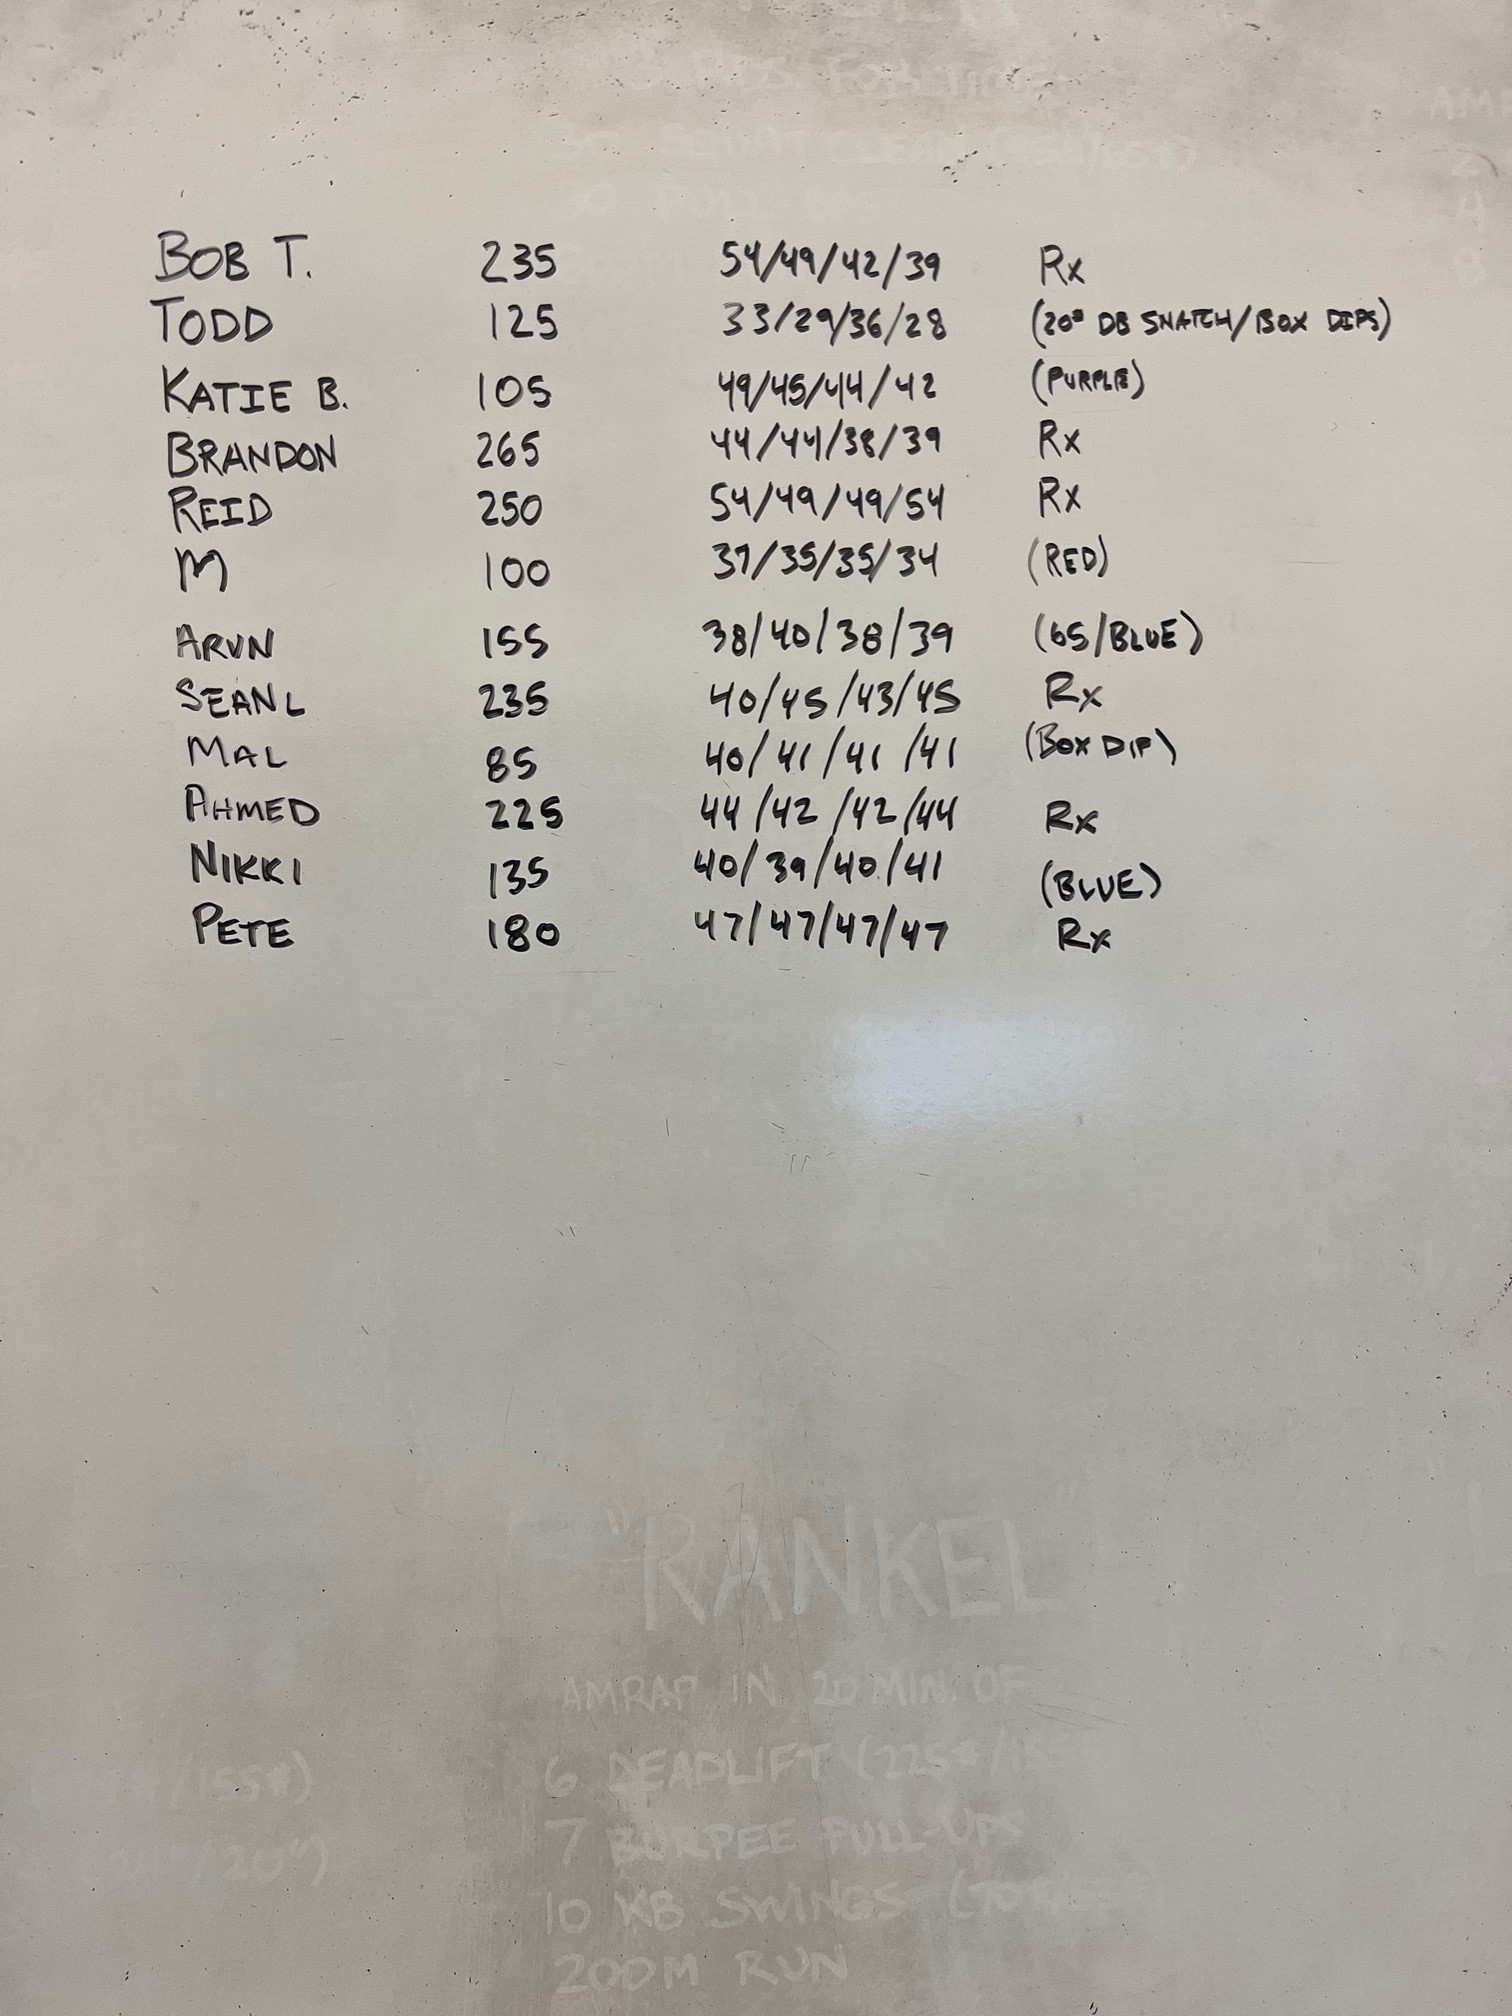 3 RDS FOR TIME
BOB T. 235 54/49/42/39 Rx
TODD 125 33/29/36/28 (20# DB SNATCH/BOX DIPS)
KATIE B. 105 49/45/44/42 (PURPLE)
BRANDON 265 44/44/38/39 Rx
REID 250 54/49/49/54 Rx
M 100 37/35/35/34 (RED)
ARUN 155 38/40/38/39 (65/BLUE)
SEAN L 235 40/45/43/45 Rx
MAL 85 40/41/41/41 (BOX DIP)
AHMED 225 44/42/42/44 Rx
NIKKI 135 40/39/40/41 (BLUE)
PETE 180 47/47/47/47 Rx
"RANKEL"
AMRAP IN 20 MIN. OF
6 DEADLIFT (225#/155
7 BURPEE PULL-UPS
10 KB SWINGS
200M RUN
/155#)
/20")